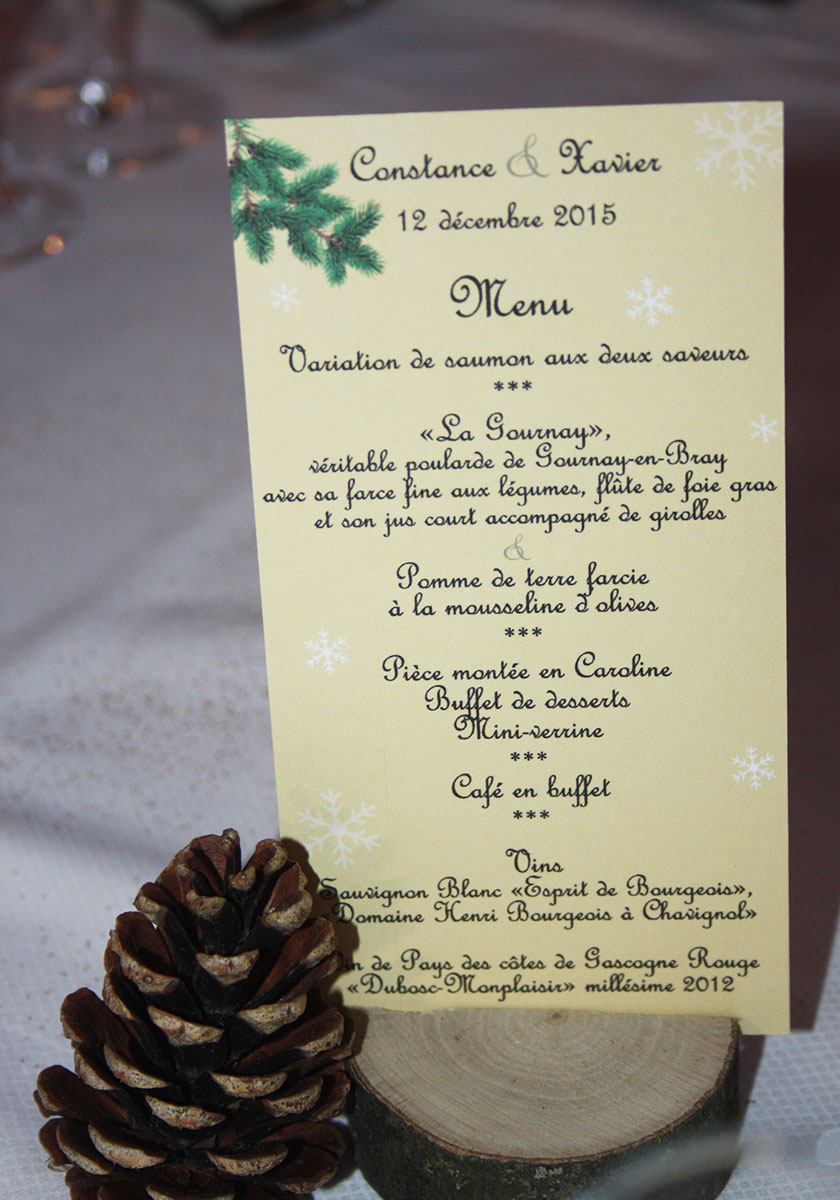 Constance & Xavier
12 décembre 2015
Menu
Variation de saumon aux deux saveurs
***
«La Gournay»,
véritable poularde de Gournay-en-Bray
avec sa farce fine aux légumes, flûte de foie gras
et son jus court accompagné de girolles
&
Pomme de terre farcie
à la mousseline d'olives
***
Pièce montée en Caroline
Buffet de desserts
Mini-verrine
***
Café en buffet
***
Vins
Sauvignon Blanc «Esprit de Bourgeois»,
«Domaine Henri Bourgeois à Chavignol»
Vin de Pays des côtes de Gascogne Rouge
«Dubosc-Monplaisir» millésime 2012